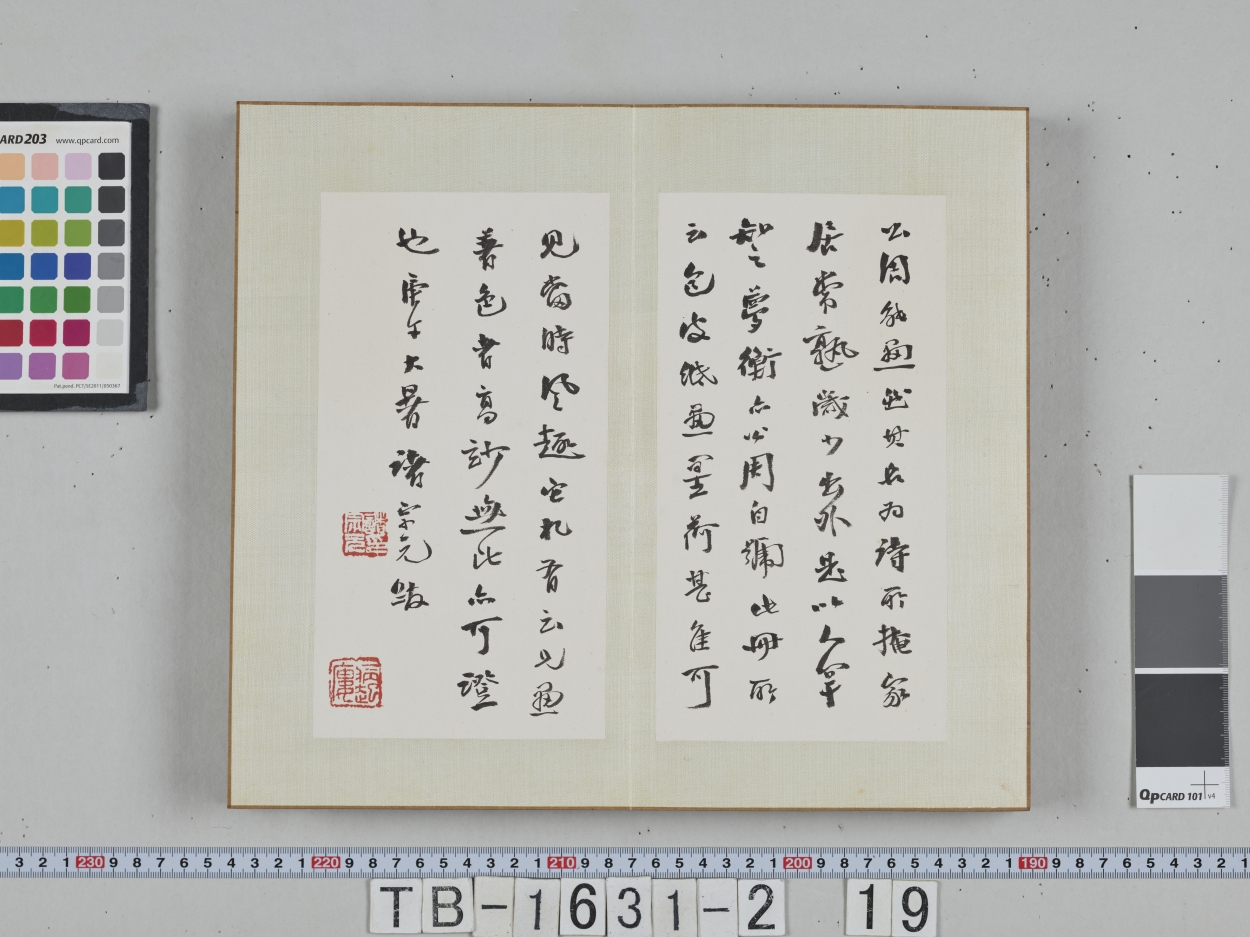 公周能畫然其名为詩所掩家
居常熟歲少出外是以人罕
知之夢衡亦公周自號此冊所
云色皮紙畫墨荷甚佳可
見當時風趣它札有云凡畫
著色者高妙無此亦可證
也庚午大暑諸宗元跋
CARD203 www.qpcard.com
Pat.pend. PCT/SE2011/050367
QpCARD 101 v4
3 2 1 230 9 8 7 6 5 4 3 2 1 220 9 8 7 6 5 4 3 2 1 210 9 8 7 6 5 4 3 2 1 200 9 8 7 6 5 4 3 2 1 190 9 8 7 6 5 4 3 2 1
TB-1631-2 19